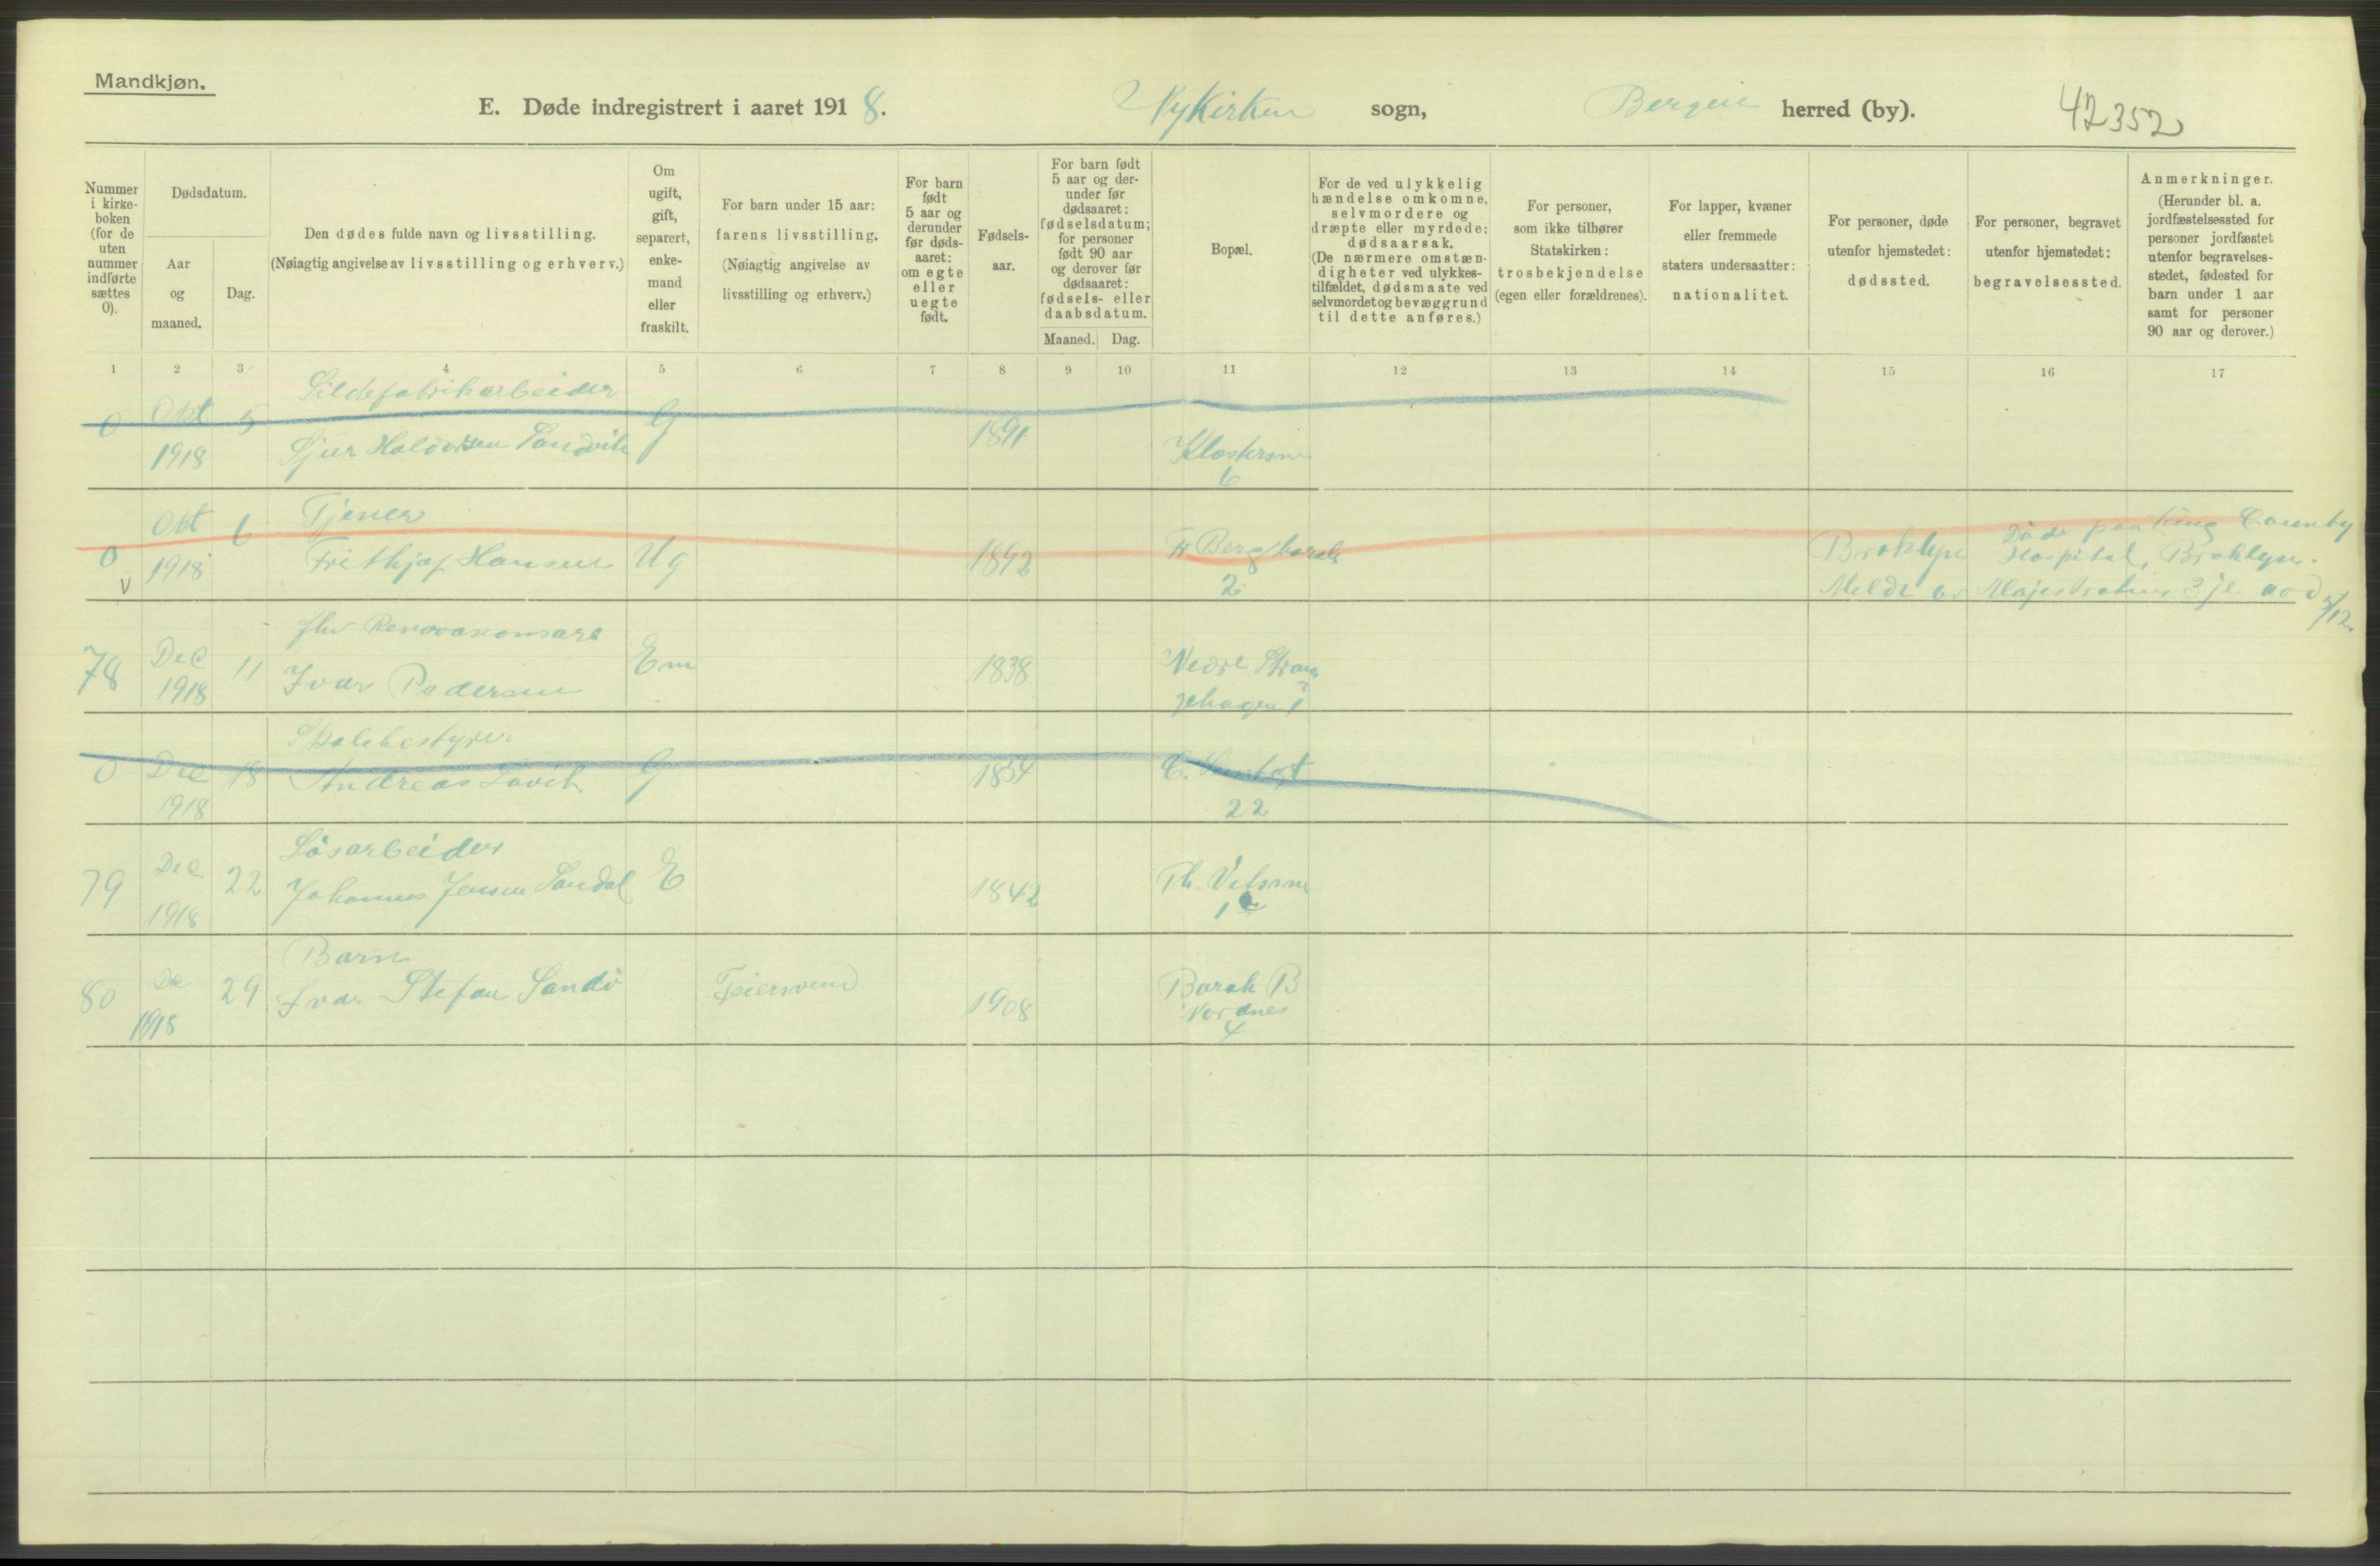 Mandkjøn.
E. Døde indregistrert i aaret 1918. Nykirken sogn, Bergen herred (by). 42352
Nummer i kirkeboken (for de uten nummer indførte sættes 0).
Dødsdatum.
Aar og maaned.
Dag.
Den dødes fulde navn og livsstilling.
(Nøiagtig angivelse av livsstilling og erhverv.)
Om ugift, gift, separert, enkemand eller fraskilt.
For barn under 15 aar: farens livsstilling. (Nøiagtig angivelse av livsstilling og erhverv.)
For barn født 5 aar og derunder før dødsaaret: om egte eller uegte født.
Fødselsaar.
For barn født 5 aar og derunder før dødsaaret: fødselsdatum; for personer født 90 aar og derover før dødsaaret: fødsels- eller daabsdatum.
Maaned. Dag.
Bopæl.
For de ved ulykkelig hændelse omkomne, selvmordere og dræpte eller myrdede: dødsaarsak. (De nærmere omstændigheter ved ulykkestilfældet, dødsmaate ved selvmordet og bevæggrund til dette anføres.)
For personer, som ikke tilhører Statskirken: trosbekjendelse (egen eller forældrenes).
For lapper, kvæner eller fremmede staters undersaatter: nationalitet.
For personer, døde utenfor hjemstedet: dødssted.
For personer, begravet utenfor hjemstedet: begravelsessted.
Anmerkninger. (Herunder bl. a. jordfæstelsessted for personer jordfæstet utenfor begravelsesstedet, fødested for barn under 1 aar samt for personer 90 aar og derover.)
1 2 3 4 5 6 7 8 9 10 11 12 13 14 15 16 17
Sildefabrikarbeider
0 Okt 5 G 1891
1918 Sjur Haldorsen Sandvik Klostersm
6
Okt 6 Tjener Døde paa King County
0 1918 Frithjof Hansen Ug 1892 Fr Berg Brooklyn Hospital, Brooklyn.
V 2 Meldt av Majestratens 3je 5/12.
fhv Renovasionsarb
78 Dec 11 Em 1838 Nedre Stran
1918 Ivar Pedersen gehagen 1
Skolebestyrer
0 Dec 18 Andreas Lavik G 1854 C.
1918 22
Løsarbeider
79 Dec 22 Johannes Jensen Sandal E 1842 Th.
1918 1
Barn
80 De 29 Ivar Stefan Sandø Feiersvend 1908 Barak B
1918 Nordnes
4